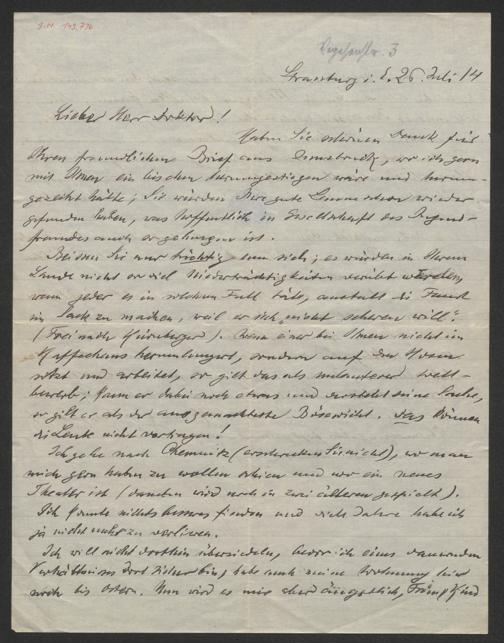 I.N. 149.796
Vogesenstr. 3
Strassburg i. E. 26. Juli 14
Lieber Herr Doktor!
Haben Sie schönen Dank für
Ihren freundlichen Brief aus Innsbruck, wo ich gern
mit Ihnen ein bischen herumgestiegen wäre und herum-
gezecht hätte; Sie würden Ihre gute Laune schon wieder
gefunden haben, was hoffentlich in Gesellschaft des Jugend-
freundes auch so gelungen ist.
Beissen Sie nur tüchtig um sich; es würden in Ihrem
Lande nicht so viel Niederträchtigkeiten verübt werden,
wenn jeder es in solchem Fall täte, anstatt die Faust
im Sack zu machen, weil er sich nicht scheren will!
(Frei nach Kürnberger). Wenn einer bei Ihnen nicht im
Kaffeehaus herumlungert, sondern auf den Hosen
sitzt und arbeitet, so gilt das als unlauterer Wett-
bewerb; kann er dabei noch etwas und versteht seine Sache,
so gilt er als der ausgemachteste Bösewicht. Das können
die Leute nicht vertragen!
Ich gehe nach Chemnitz (erschrecken Sie nicht), wo man
mich gern haben zu wollen schien und wo ein neues
Theater ist (daneben wird noch in zwei älteren gespielt).
Ich konnte nichts besseres finden und viele Jahre habe ich
ja nicht mehr zu verlieren.
Ich will nicht dorthin übersiedeln, bevor ich eines dauernden
Verhältnisses dort sicher bin, habe auch meine Wohnung hier
noch bis Ostern. Nun wird es mir aber ängstlich, Frau u. Kind